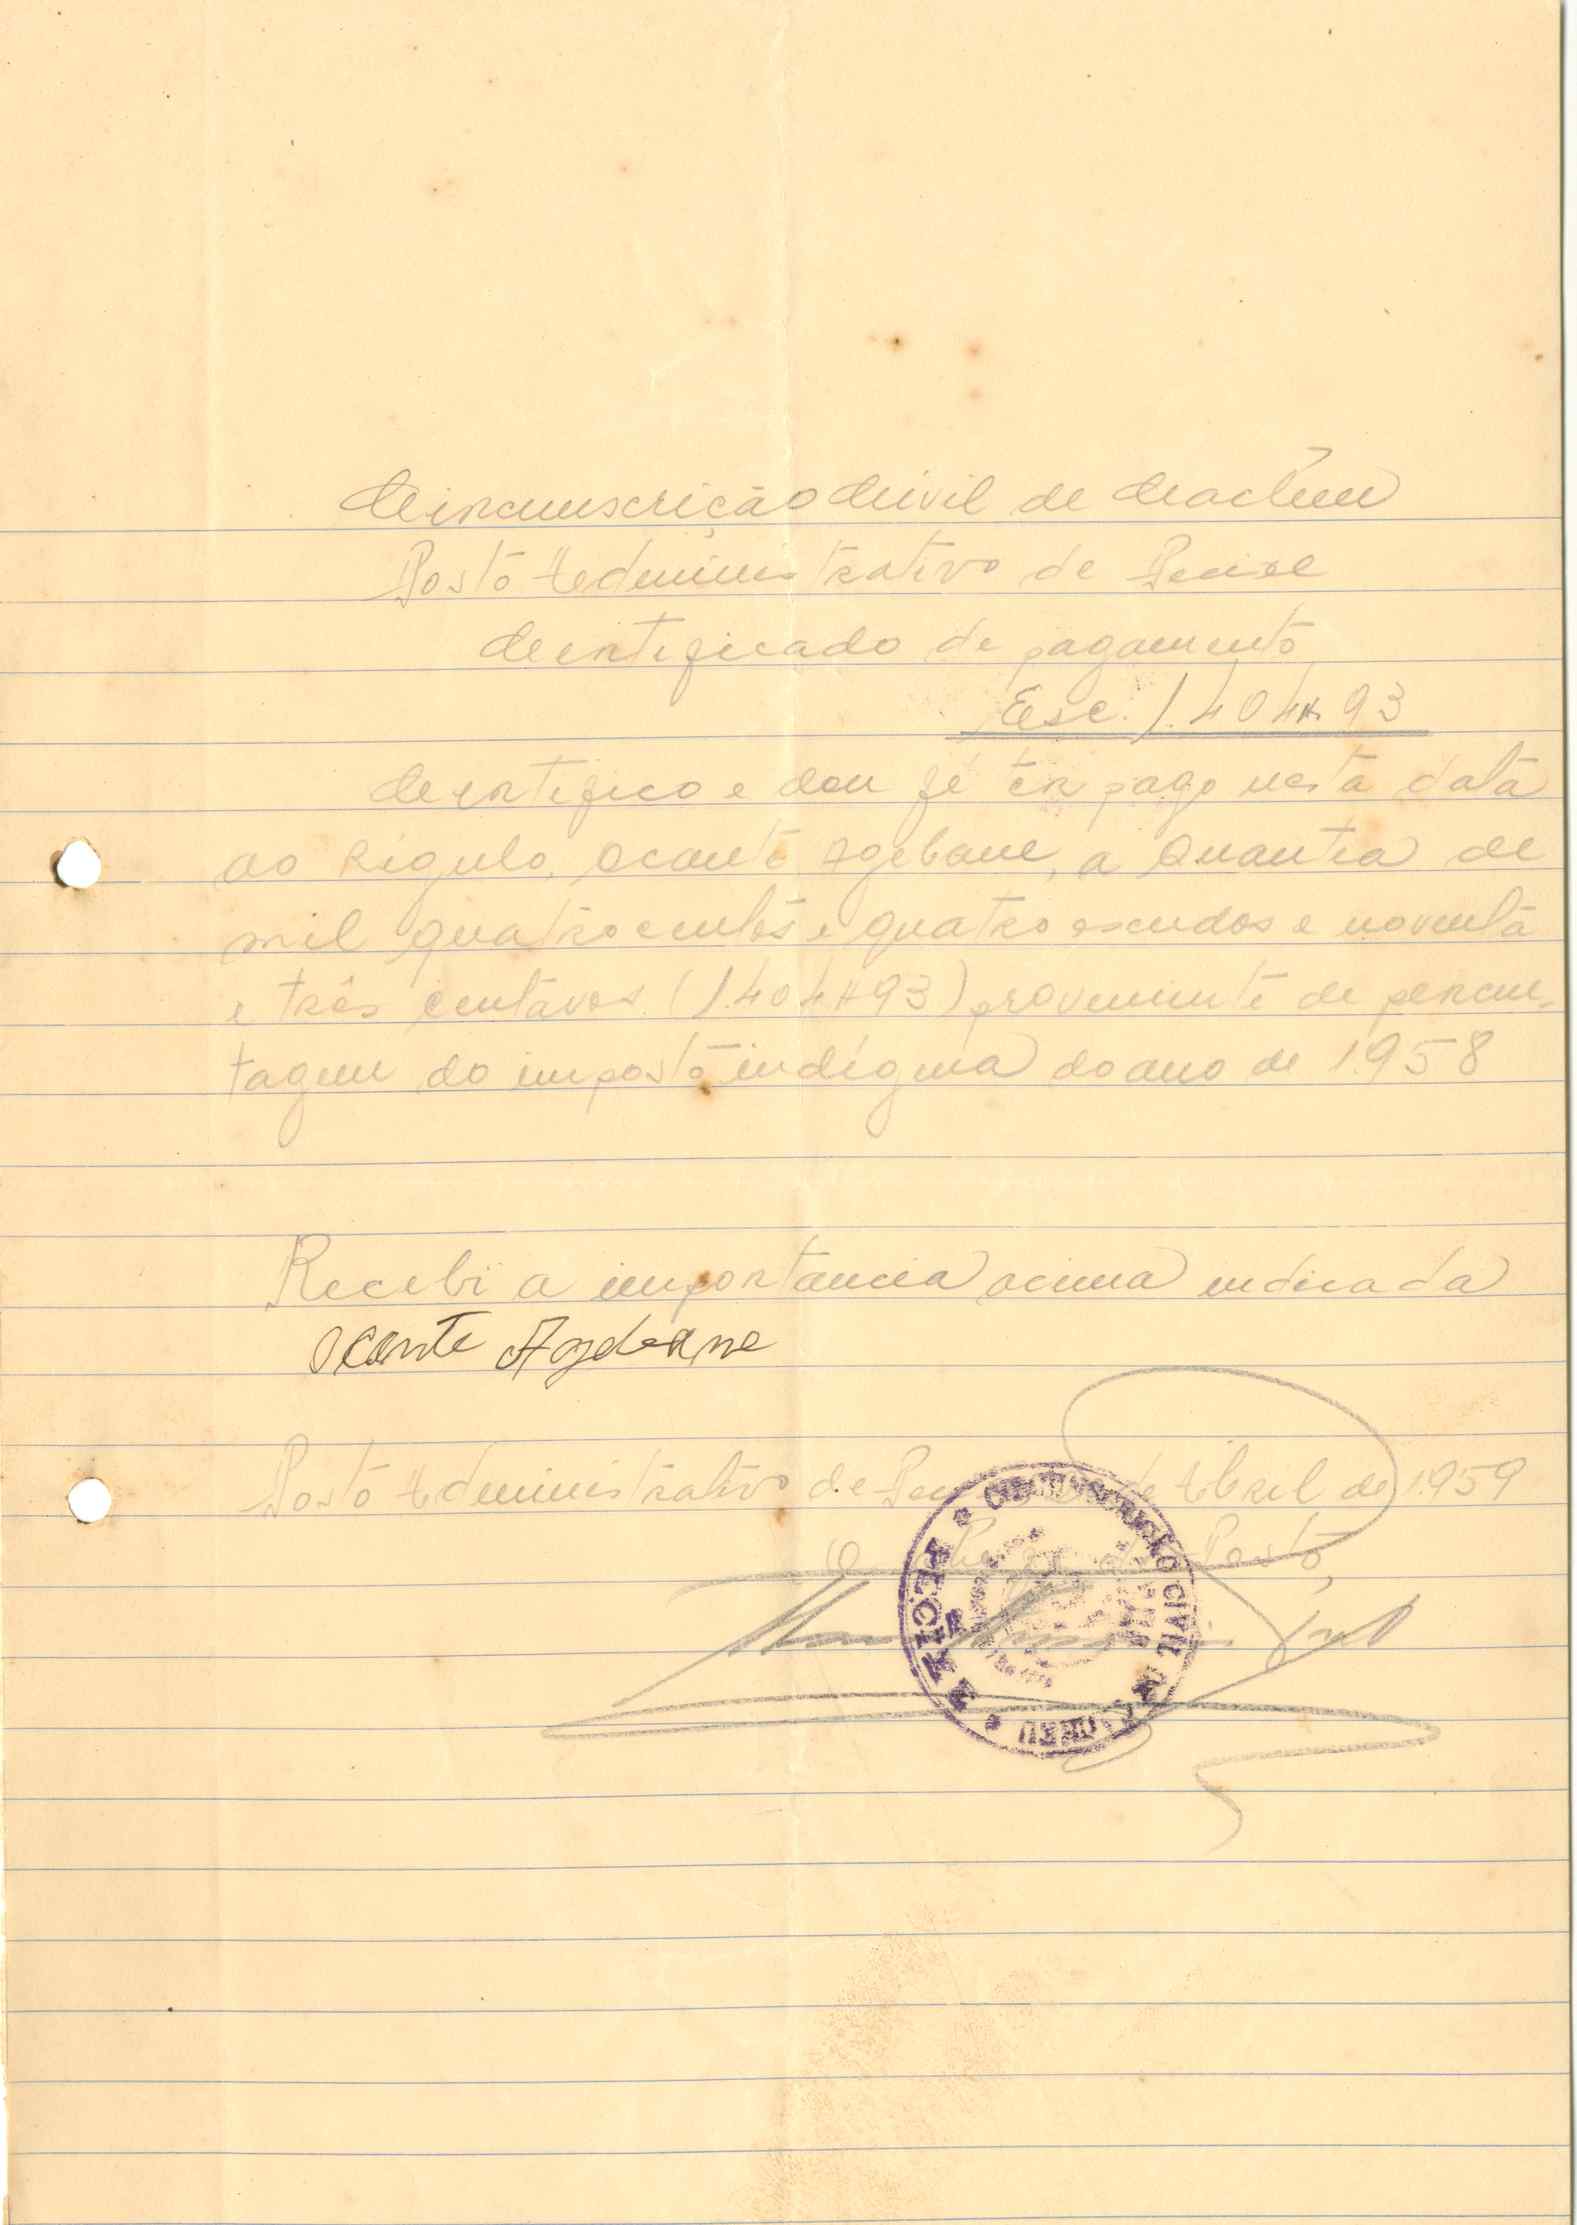 Circunscrição Civil de Cachéu
Posto Administrativo de Pecixe
Certificado de pagamento
Esc. 1.404$93
Certifico e dou fé ter pago nesta data
ao Régulo, Ocante Agebane, a quantia de
mil quatrocentos e quatro escudos e noventa
e três centavos (1.404$93) proveniente de percen-
tagem do imposto indígena do ano de 1958
Recebi a importancia acima indicada
Ocante
Posto Administrativo de de Abril de 1959
O Chefe do Posto,
CIRCUNSCRIÇÃO CIVIL